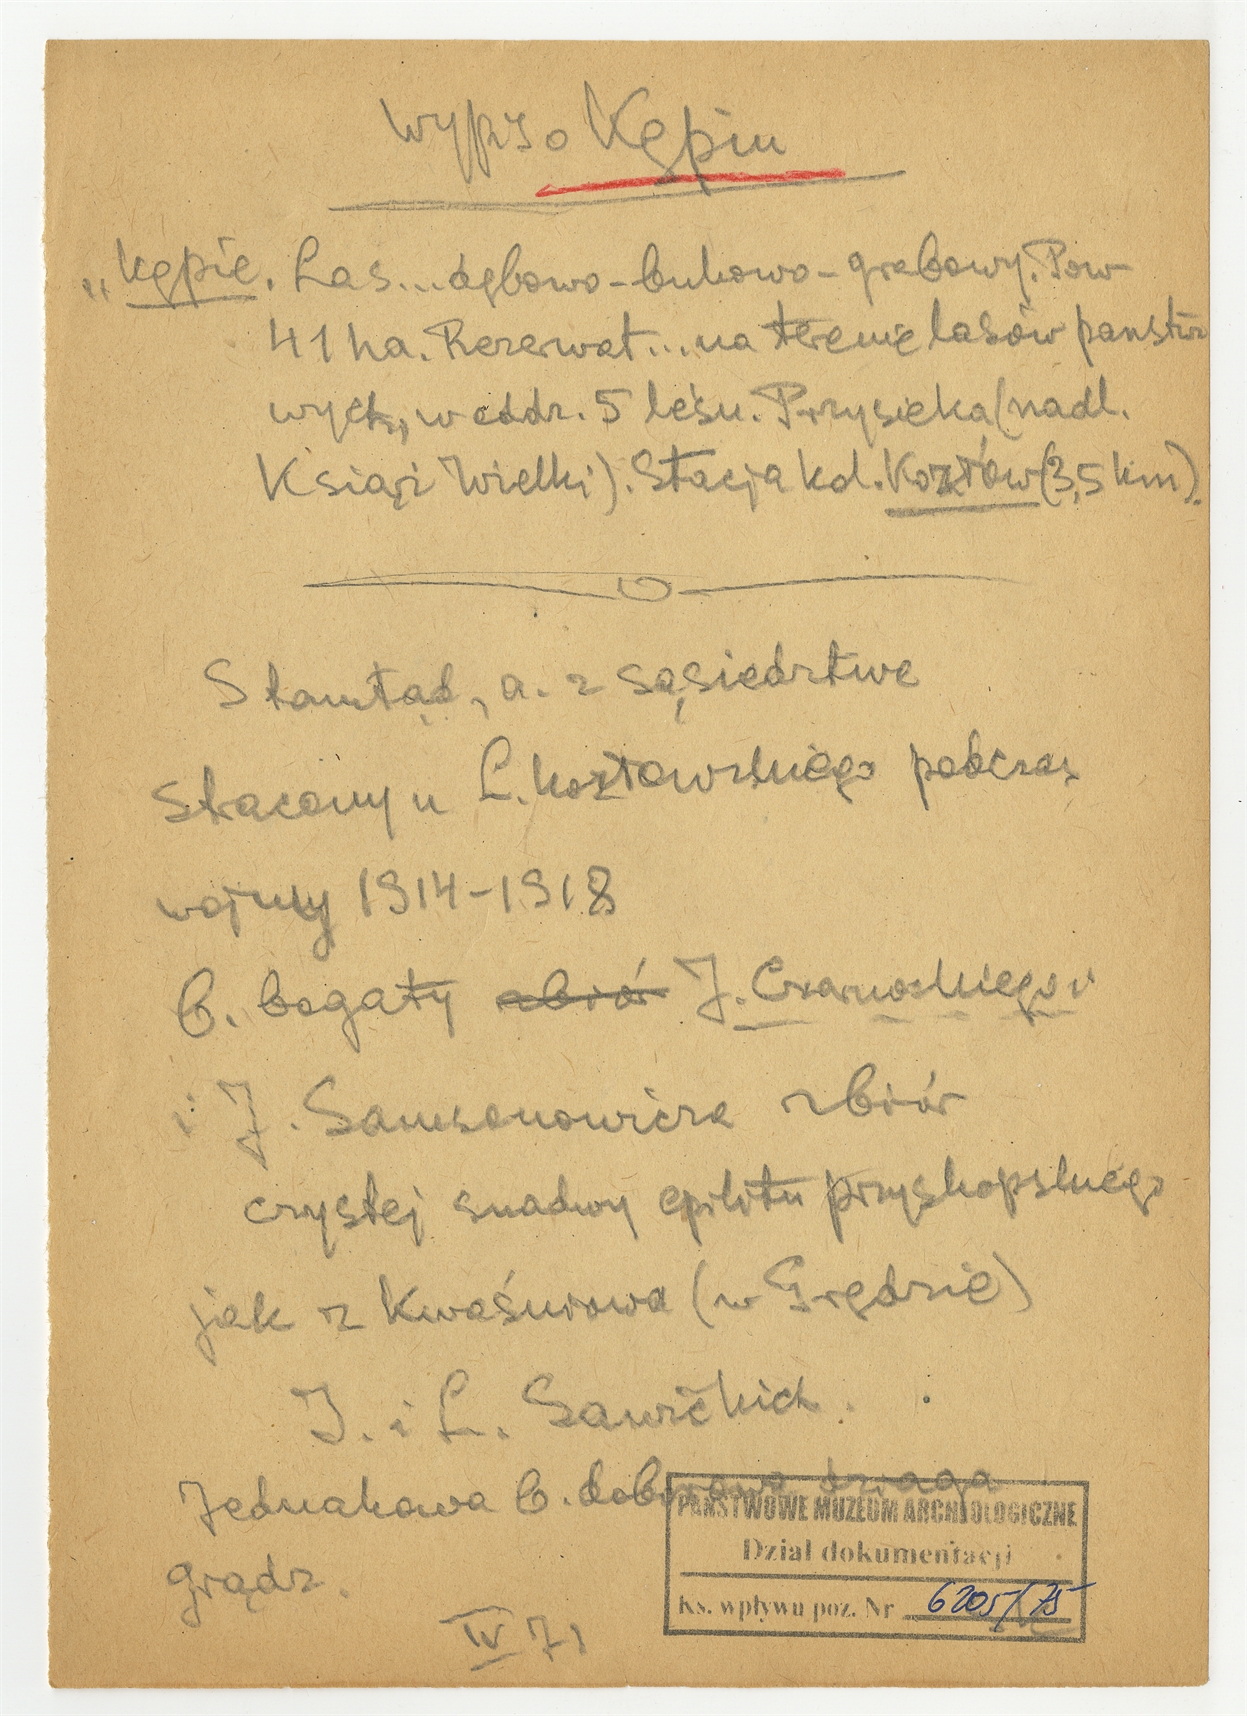 wypis o Kępiu
„Kępie. Las... dębowo-bukowo-grabowy. Pow
41 ha. Rezerwat... na terenie lasów państwo
wych, w oddz. 5 leśn. Przysieka (nadl.
Książ Wielki). Stacja kol. Kozłów (3,5 km).
Stamtąd, a. z sąsiedztwa
stracony u L. Kozłowskiego podczas
wojny 1914-1918
b. bogaty zbiór J. Czarnockiego i
i J. Samsonowicza zbiór
czystej suadwy epilitu przyskopskiego
jak z Kwaśniowa (w Grędzie)
J. i L. Sawickich.
Jednakowa b. dobrowa
grądz.
IV 71
PAŃSTWOWE MUZEUM ARCHEOLOGICZNE
Dział dokumentacji
Ks. wpływu poz. Nr 6205/75